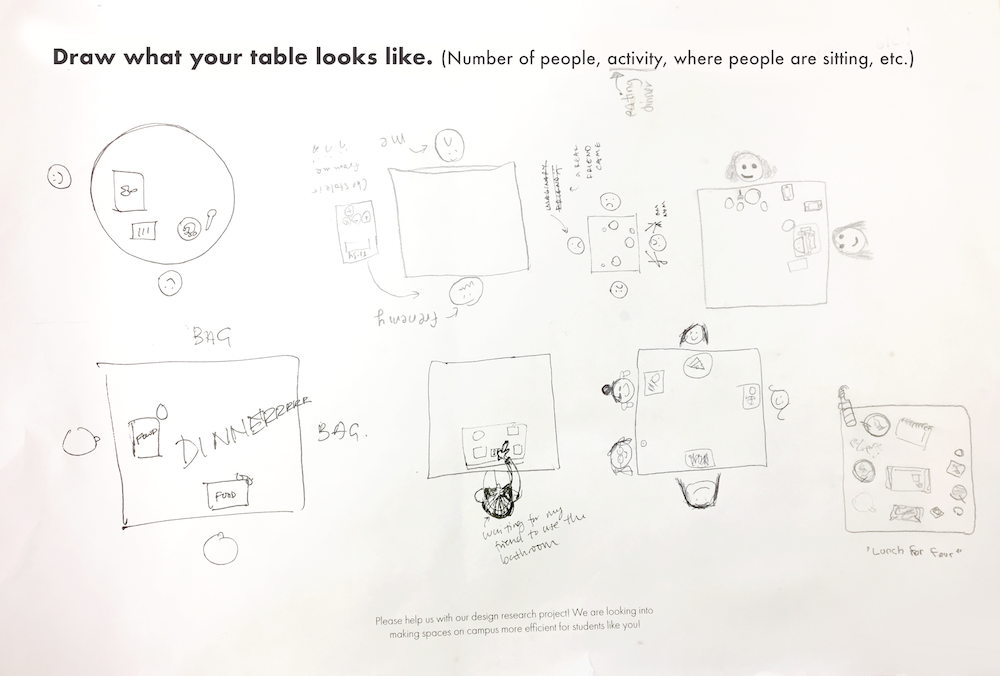 Draw what your table looks like. (Number of people, activity, where people are sitting, etc.)
eating
dinner
me
IMAGINARY
FRIEND
A REAL
FRIEND
CAME
frenemy
BAG
FOOD
DINNERRRRR
BAG.
FOOD
waiting for my
friend to use the
bathroom
"Lunch For Four"
Please help us with our design research project! We are looking into
making spaces on campus more efficient for students like you!